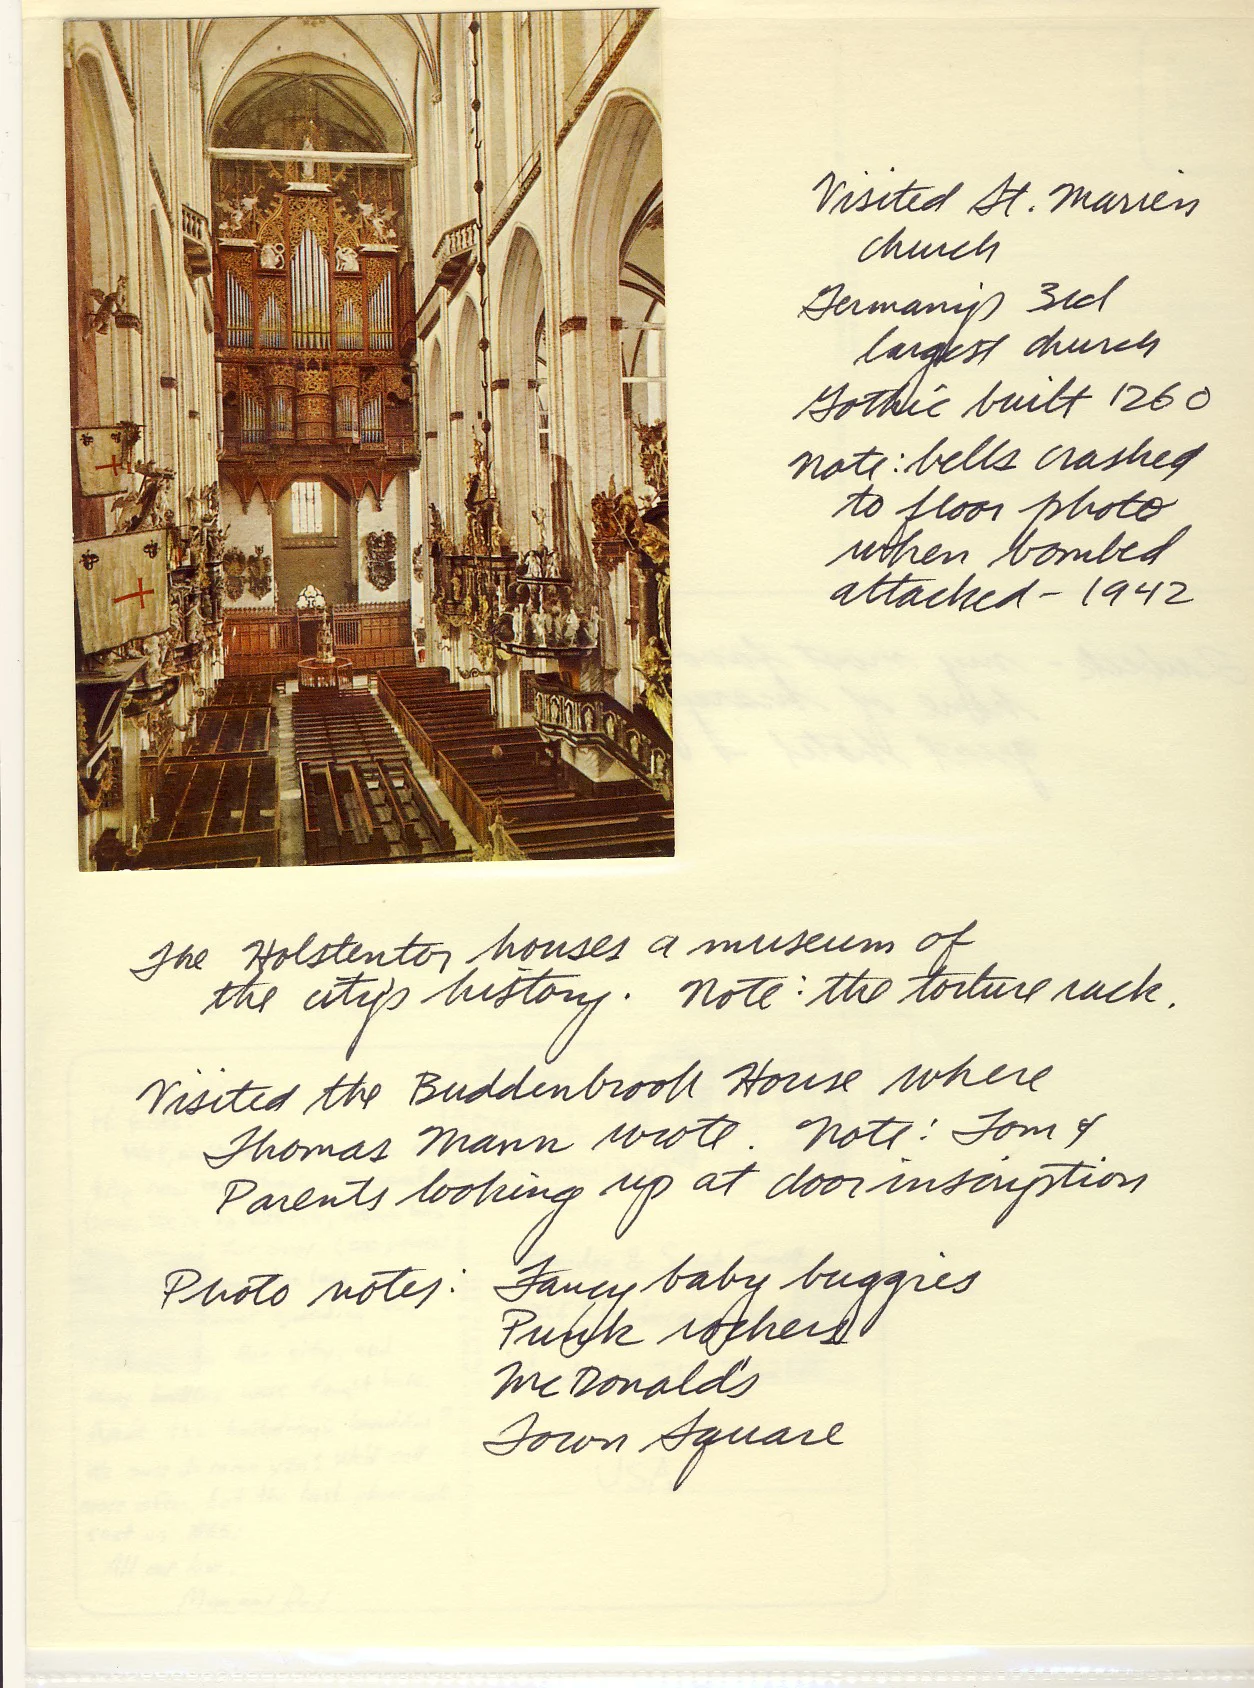 Visited St. Marien
church
Germany's 3rd
largest church
Gothic built 1260
Note: bells crashed
to floor photo
when bombed
attacked - 1942
The Holstentor houses a museum of
the city's history. Note: the torture rack.
Visited the Buddenbrook House where
Thomas Mann wrote. Note: Tom &
Parents looking up at door inscription
Photo notes: Fancy baby buggies
Punk rockers
McDonald's
Town Square